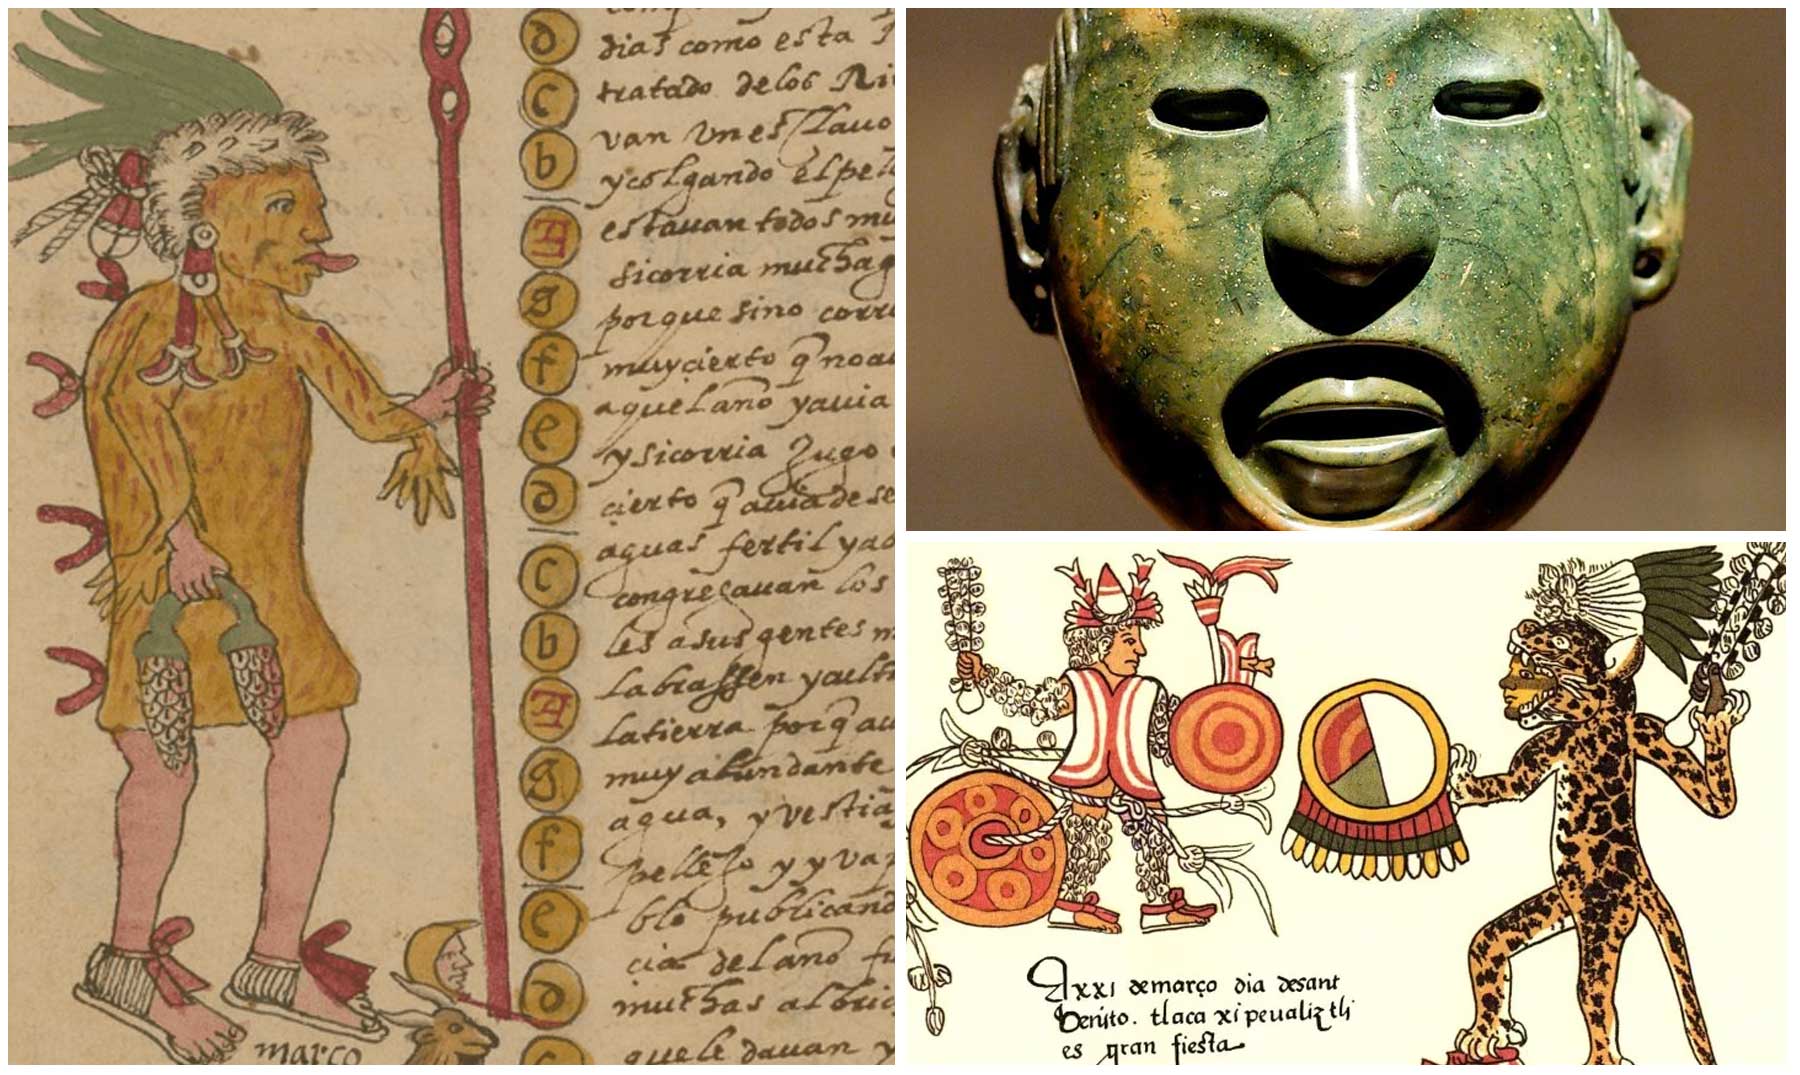 d
c
b
A
g
f
e
d
c
b
A
g
f
e
d
c
dias como esta
tratado delos
van un esclavo
y colgando el pele
estavan todos mu
si corria mucha
porque sino corri
muy cierto q̃ no a
aquel año y avia
y si corria
cierto q̃ avia de se
aguas fertil y a
congregavan los
les a sus gentes m
labrassen y
la tierra porq̃ a
muy abundante
agua, y vestia
pellejo y y va
blo publicand
cia del año f
muchas
quele davan y
março
A xxi de março dia desant
benito. tlaca xi peualiztli
es gran fiesta